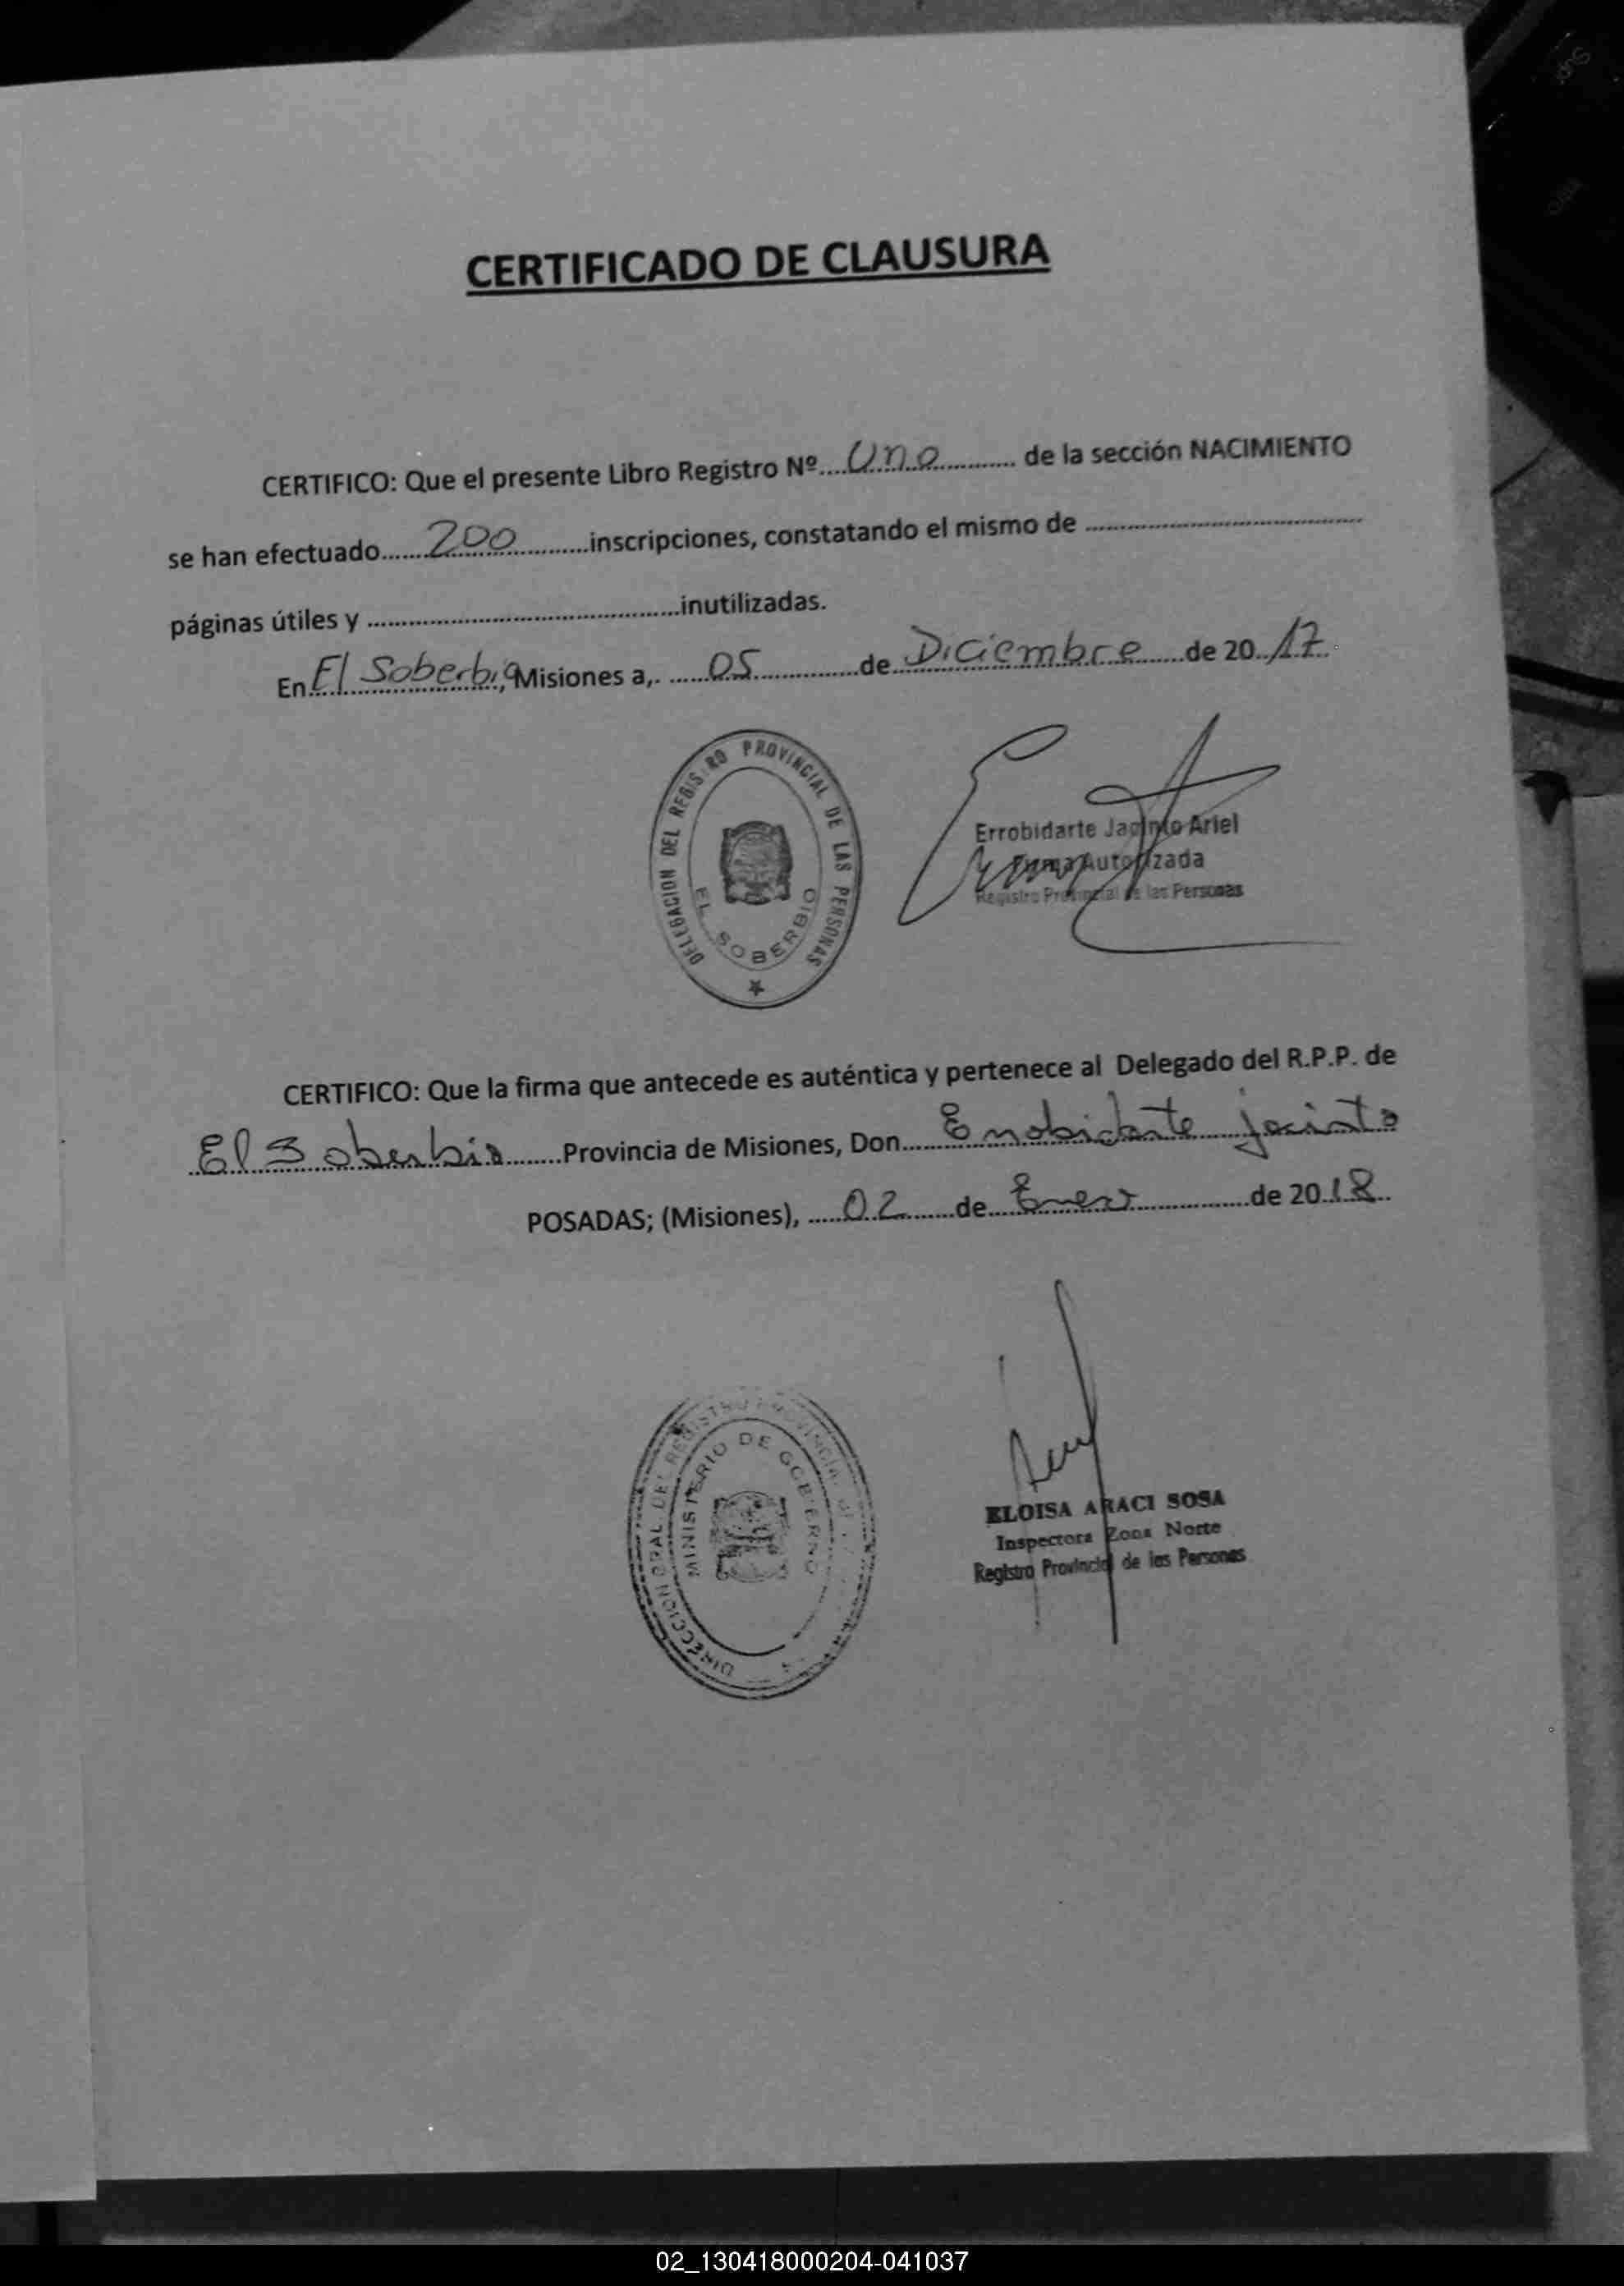 CERTIFICADO DE CLAUSURA
CERTIFICO: Que el presente Libro Registro Nº....Uno............ de la sección NACIMIENTO
se han efectuado......200............inscripciones, constatando el mismo de ................................................
páginas útiles y ................................................inutilizadas.
En El Soberbio, Misiones a,. ......05...............de Diciembre......de 20..17..
DELEGACION DEL REGISTRO PROVINCIAL DE LAS PERSONAS
EL SOBERBIO
Errobidarte Jacinto Ariel
Firma Autorizada
Registro Provincial de las Personas
CERTIFICO: Que la firma que antecede es auténtica y pertenece al Delegado del R.P.P. de
El Soberbio........Provincia de Misiones, Don......Errobidarte Jacinto
POSADAS; (Misiones), .....02........de...Enero................de 2018..
DIRECCION GRAL. DEL REGISTRO PROVINCIAL
MINISTERIO DE GOBIERNO
ELOISA ARACI SOSA
Inspectora Zona Norte
Registro Provincial de las Personas
02_130418000204-041037